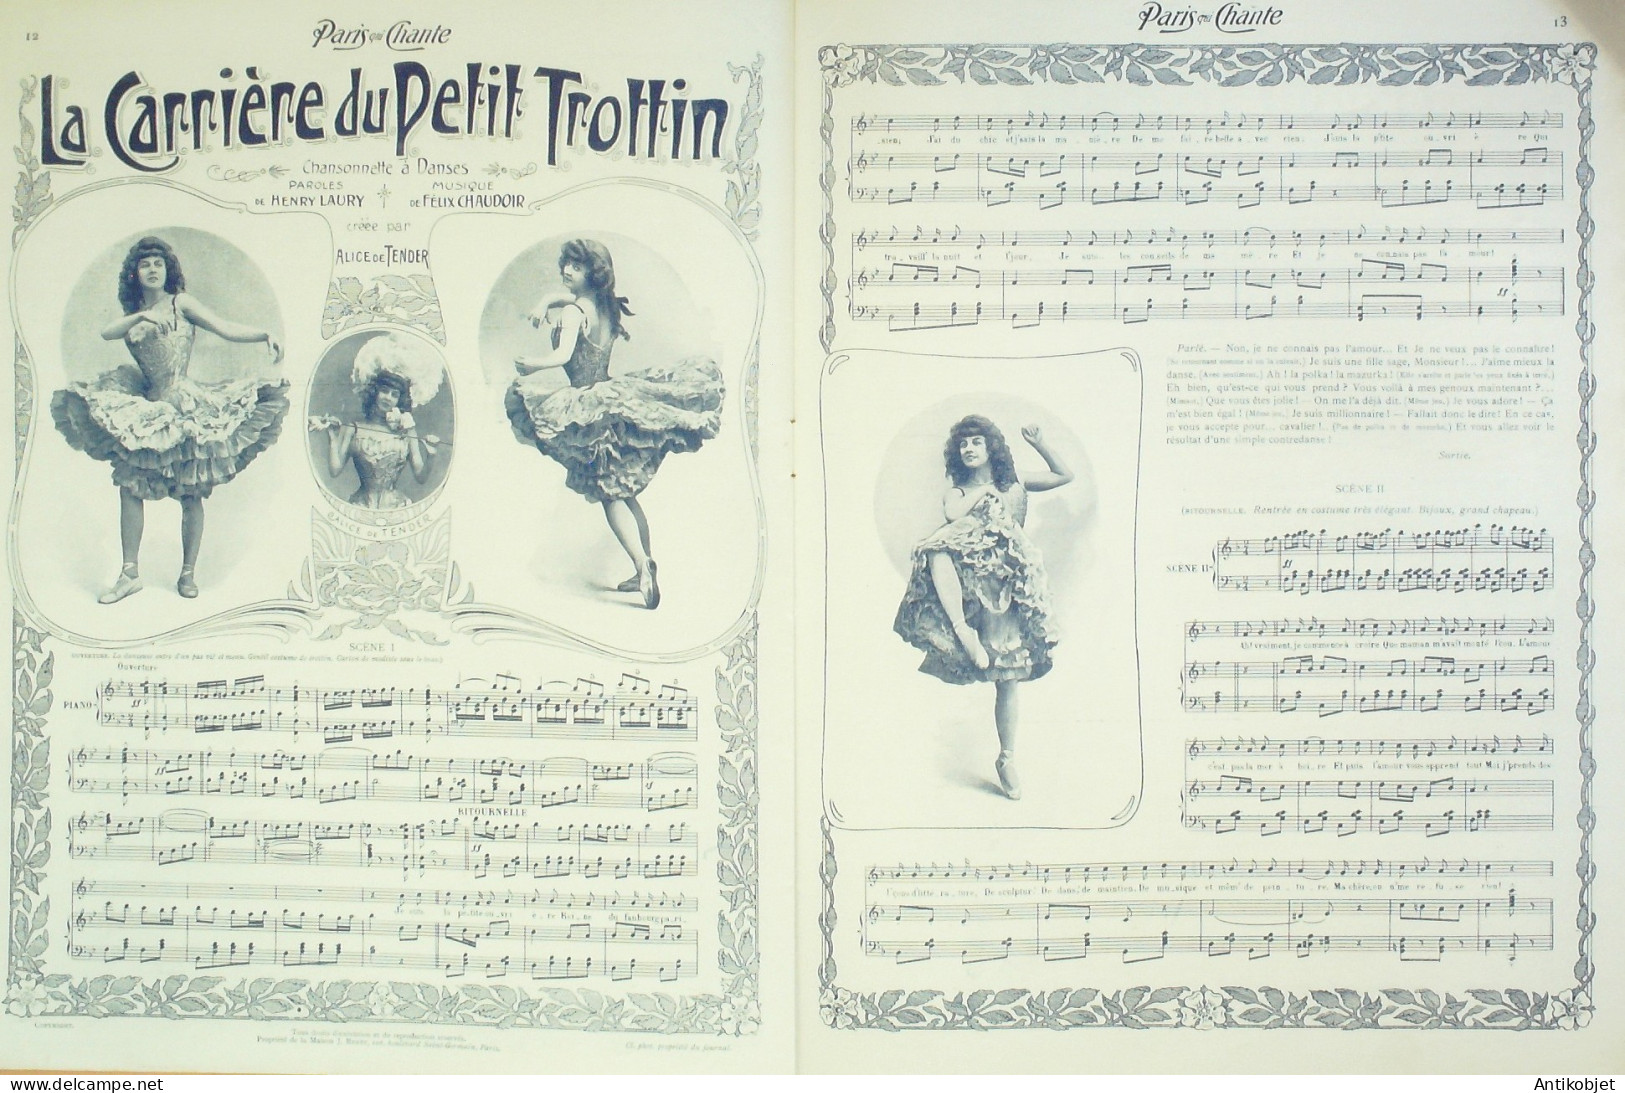 12
Paris qui Chante
La Carrière du Petit Trottin
Chansonnette à Danses
PAROLES
DE HENRY LAURY
MUSIQUE
DE FÉLIX CHAUDOIR
créée par
ALICE DE TENDER
ALICE DE TENDER
SCÈNE I
Ouverture
PIANO
ff
RITOURNELLE
ff
Je suis la pe.tite ou.vri è.re Rei.ne du faubourg pa.ri.
COPYRIGHT.
Tous droits d'exécution et de reproduction réservés.
Cl. phot. propriété du journal.
Paris qui Chante
13
.sien; J'ai du chic et j'sais la ma.niè.re De me fai.re belle a.vec rien. J'aime la p'tite ou.vri è.re Qui
tra.vaill' la nuit et l'jour. Je suis les con.seils de ma mè.re Et je ne connais pas l'a mour!
ff
Parlé. — Non, je ne connais pas l'amour... Et Je ne veux pas le connaître!
Je suis une fille sage, Monsieur!... J'aime mieux la
danse. (Avec sentiment.) Ah! la polka! la mazurka!
Eh bien, qu'est-ce qui vous prend? Vous voilà à mes genoux maintenant?...
Que vous êtes jolie! — On me l'a déjà dit. (Même jeu.) Je vous adore! — Ça
m'est bien égal! (Même jeu.) Je suis millionnaire! — Fallait donc le dire! En ce cas,
je vous accepte pour... cavalier!.. Et vous allez voir le
résultat d'une simple contredanse!
Sortie.
SCÈNE II
(RITOURNELLE. Rentrée en costume très élégant. Bijoux, grand chapeau.)
SCÈNE II
ff
Ah! vraiment, je commence à croire Que maman m'avait monté l'cou. L'amour
c'est pas la mer à boi.re Et puis l'amour vous apprend tout Moi, j'prends des
l'çons d'litté.ra.ture, De sculptur' De dans', de maintien, De mu.sique et mêm' de pein.tu.re. Ma chère, on n'me re.fu.se rien!
Antikobjet